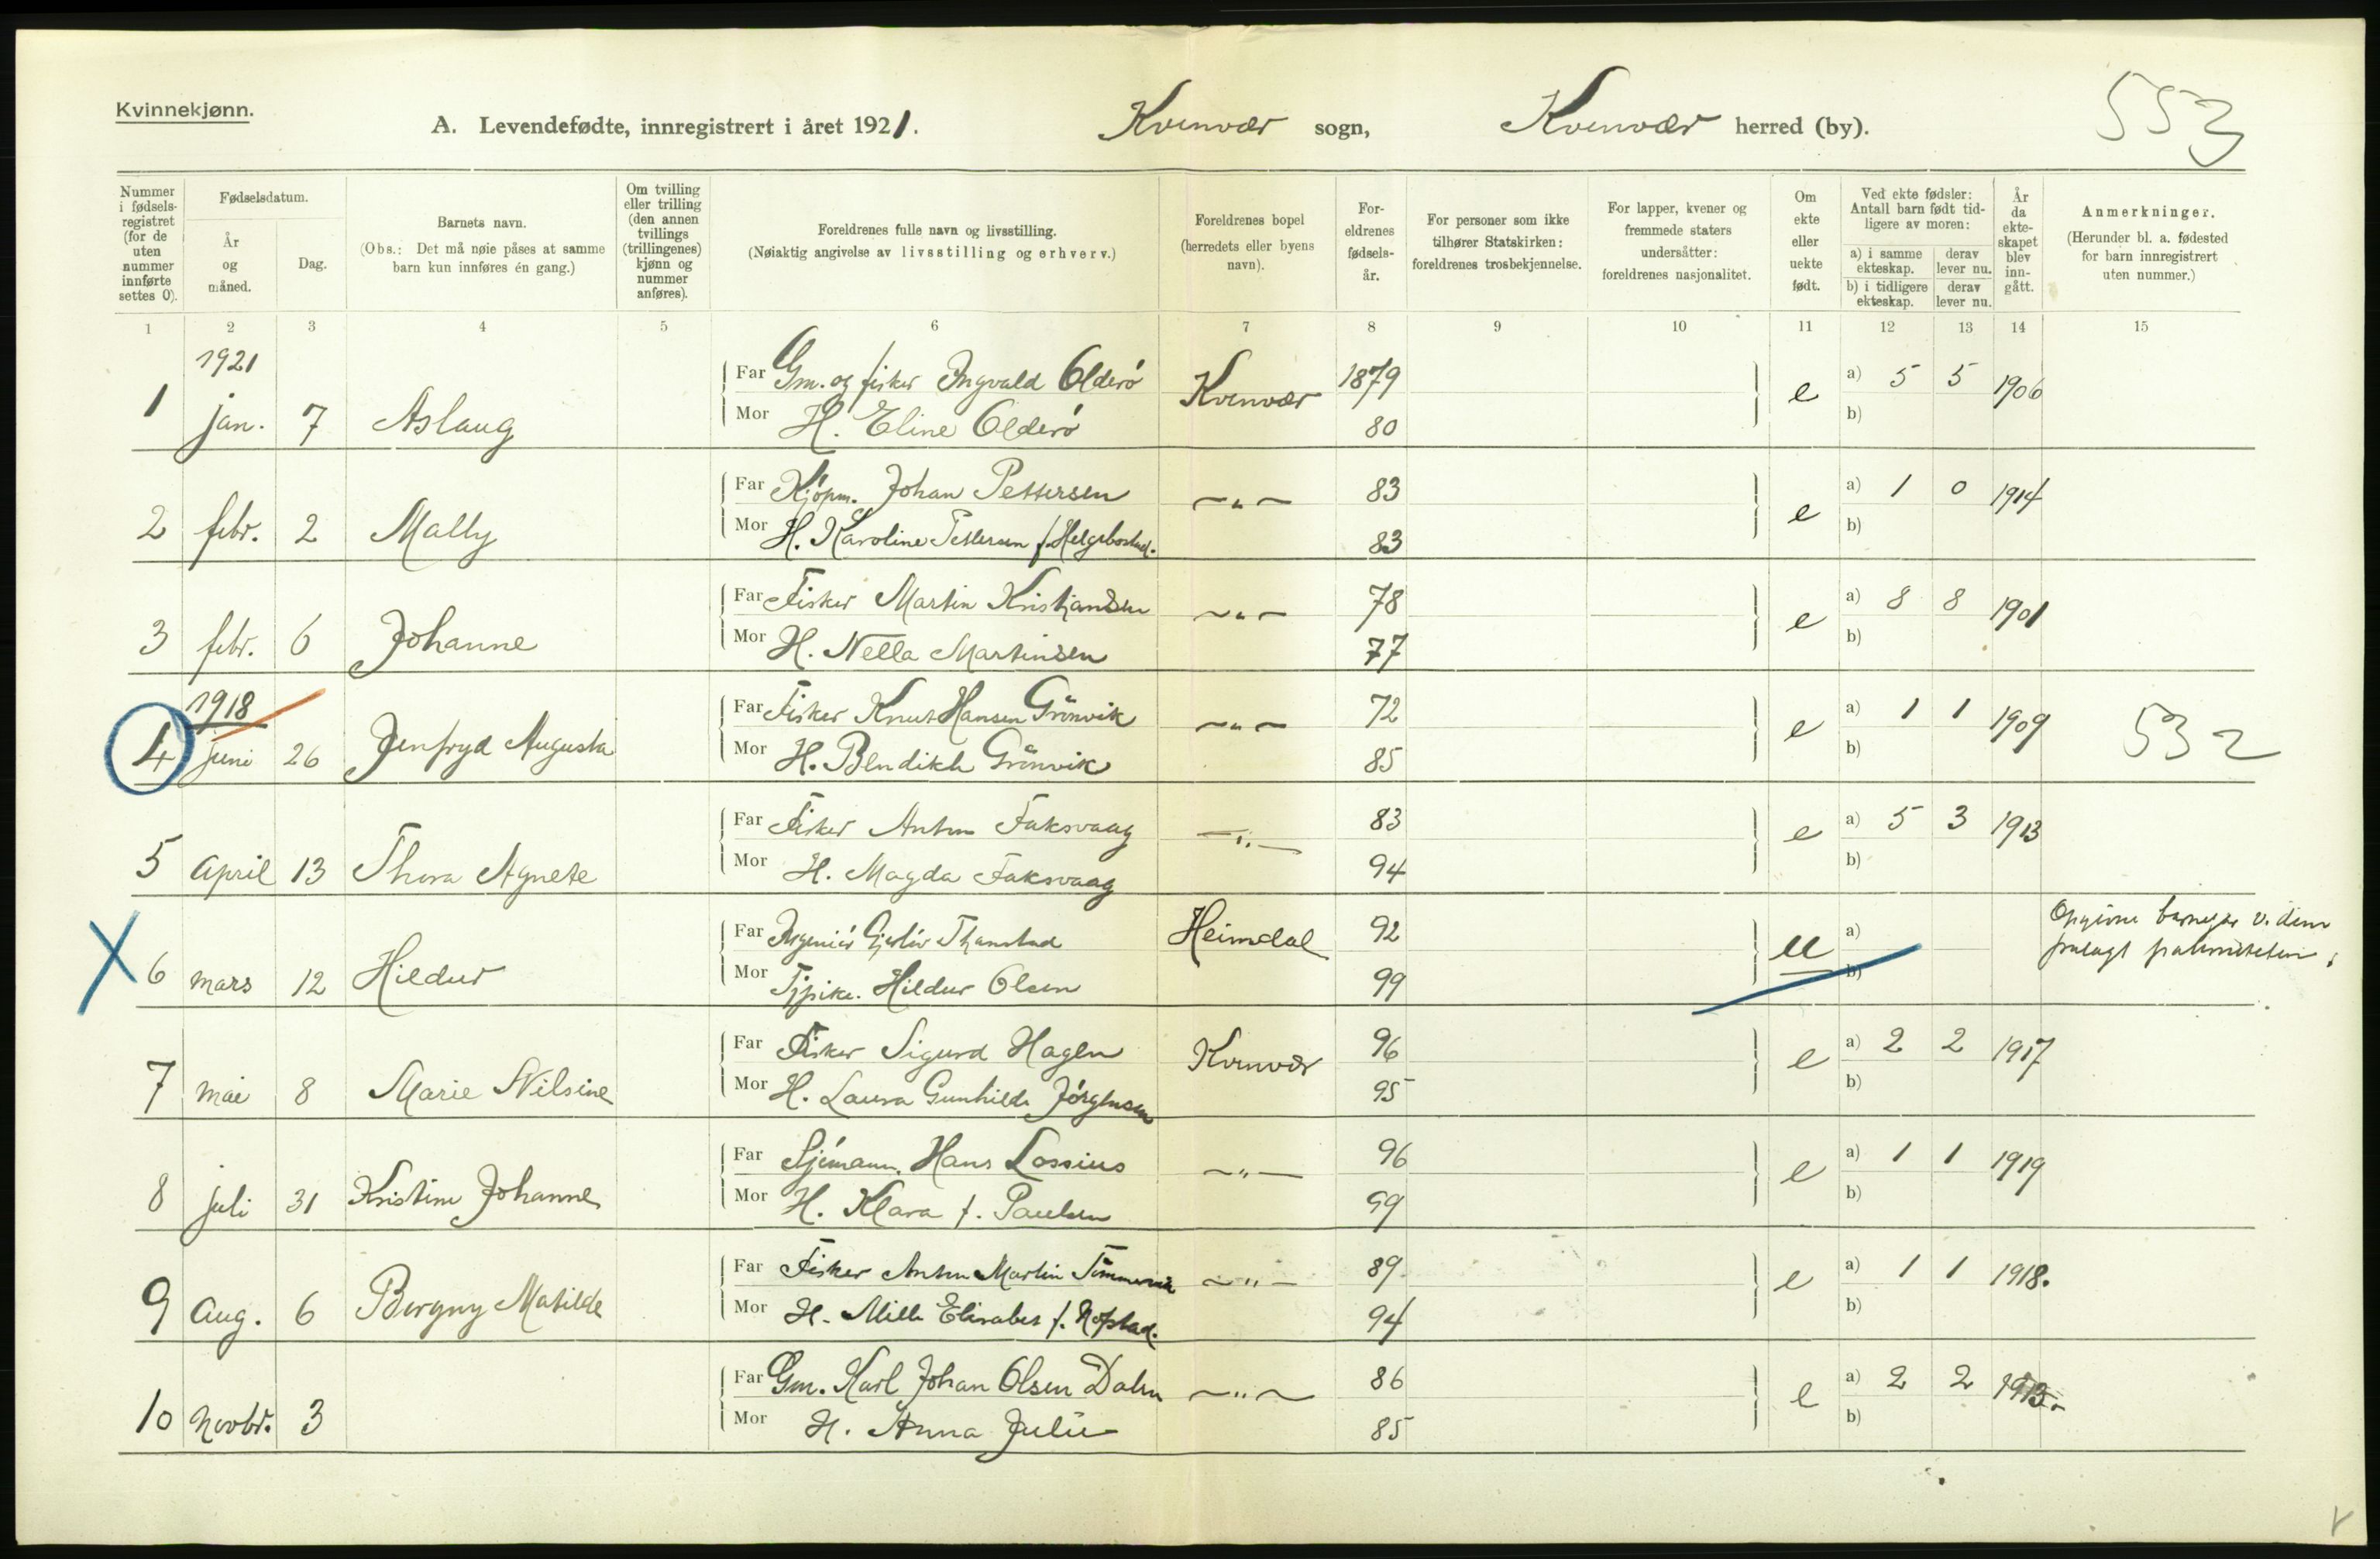 Kvinnekjønn.
A. Levendefødte, innregistrert i året 1921. Kvenvær sogn, Kvenvær herred (by). 553
Nummer i fødsels-registret (for de uten nummer innførte settes 0).
Fødselsdatum.
År og måned.
Dag.
Barnets navn.
(Obs.: Det må nøie påses at samme barn kun innføres én gang.)
Om tvilling eller trilling (den annen tvillings (trillingenes) kjønn og nummer anføres).
Foreldrenes fulle navn og livsstilling.
(Nøiaktig angivelse av livsstilling og erhverv.)
Foreldrenes bopel (herredets eller byens navn).
For-eldrenes fødsels-år.
For personer som ikke tilhører Statskirken: foreldrenes trosbekjennelse.
For lapper, kvener og fremmede staters undersåtter: foreldrenes nasjonalitet.
Om ekte eller uekte født.
Ved ekte fødsler: Antall barn født tid-ligere av moren:
a) i samme ekteskap. derav lever nu.
b) i tidligere ekteskap. derav lever nu.
År da ekte-skapet blev inn-gått.
Anmerkninger.
(Herunder bl. a. fødested for barn innregistrert uten nummer.)
1 2 3 4 5 6 7 8 9 10 11 12 13 14 15
1921
Far Gm. og fisker Ingvald Olderø Kvenvær 1879 e a) 5 5 1906
1 jan. 7 Aslaug Mor H. Eline Olderø 80 b)
Far Kjøpm. Johan Pettersen —„— 83 e a) 1 0 1914
2 febr. 2 Mally Mor H. Karoline Pettersen f. Helgebostad. 83 b)
Far Fisker Martin Kristjansen —„— 78 e a) 8 8 1901
3 febr. 6 Johanne Mor H. Nella Martinsen 77 b)
1918
Far Fisker Knut Hansen Grönvik —„— 72 e a) 1 1 1909 532
4 juni 26 Jenfryd Augusta Mor H. Bendikte Grönvik 85 b)
Far Fisker Anton Faksvaag —„— 83 e a) 5 3 1913
5 april 13 Thora Agnete Mor H. Magda Faksvaag 94 b)
Far Ingeniør Heimdal 92 u a) Opgivne barnefar v. dom
6 mars 12 Hildur Mor Tjpike. Hildur Olsen 99 b)
Far Fisker Sigurd Hagen Kvenvær 96 e a) 2 2 1917
7 mai 8 Marie Nilsine Mor H. Laura Gunhilde Jørgensen 95 b)
Far Sjømann. Hans Lossius —„— 96 e a) 1 1 1919
8 juli 31 Kristine Johanne Mor H. Klara f. Paulsen 99 b)
Far Fisker Anton Martin Tömmervik —„— 89. e a) 1 1 1918.
9 aug. 6 Borgny Matilde Mor H. Milla Elisabet f. Hofstad. 94 b)
Far Gm. Karl Johan Olsen Dalen —„— 86 e a) 2 2 1913.
10 novbr. 3 Mor H. Anna Julie 85 b)